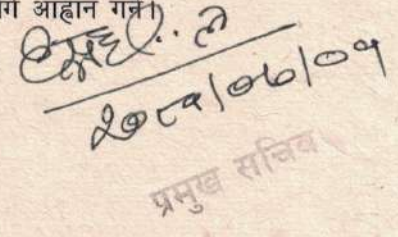 आह्वान गर्न।
२०८१|०७|०१
प्रमुख सचिव